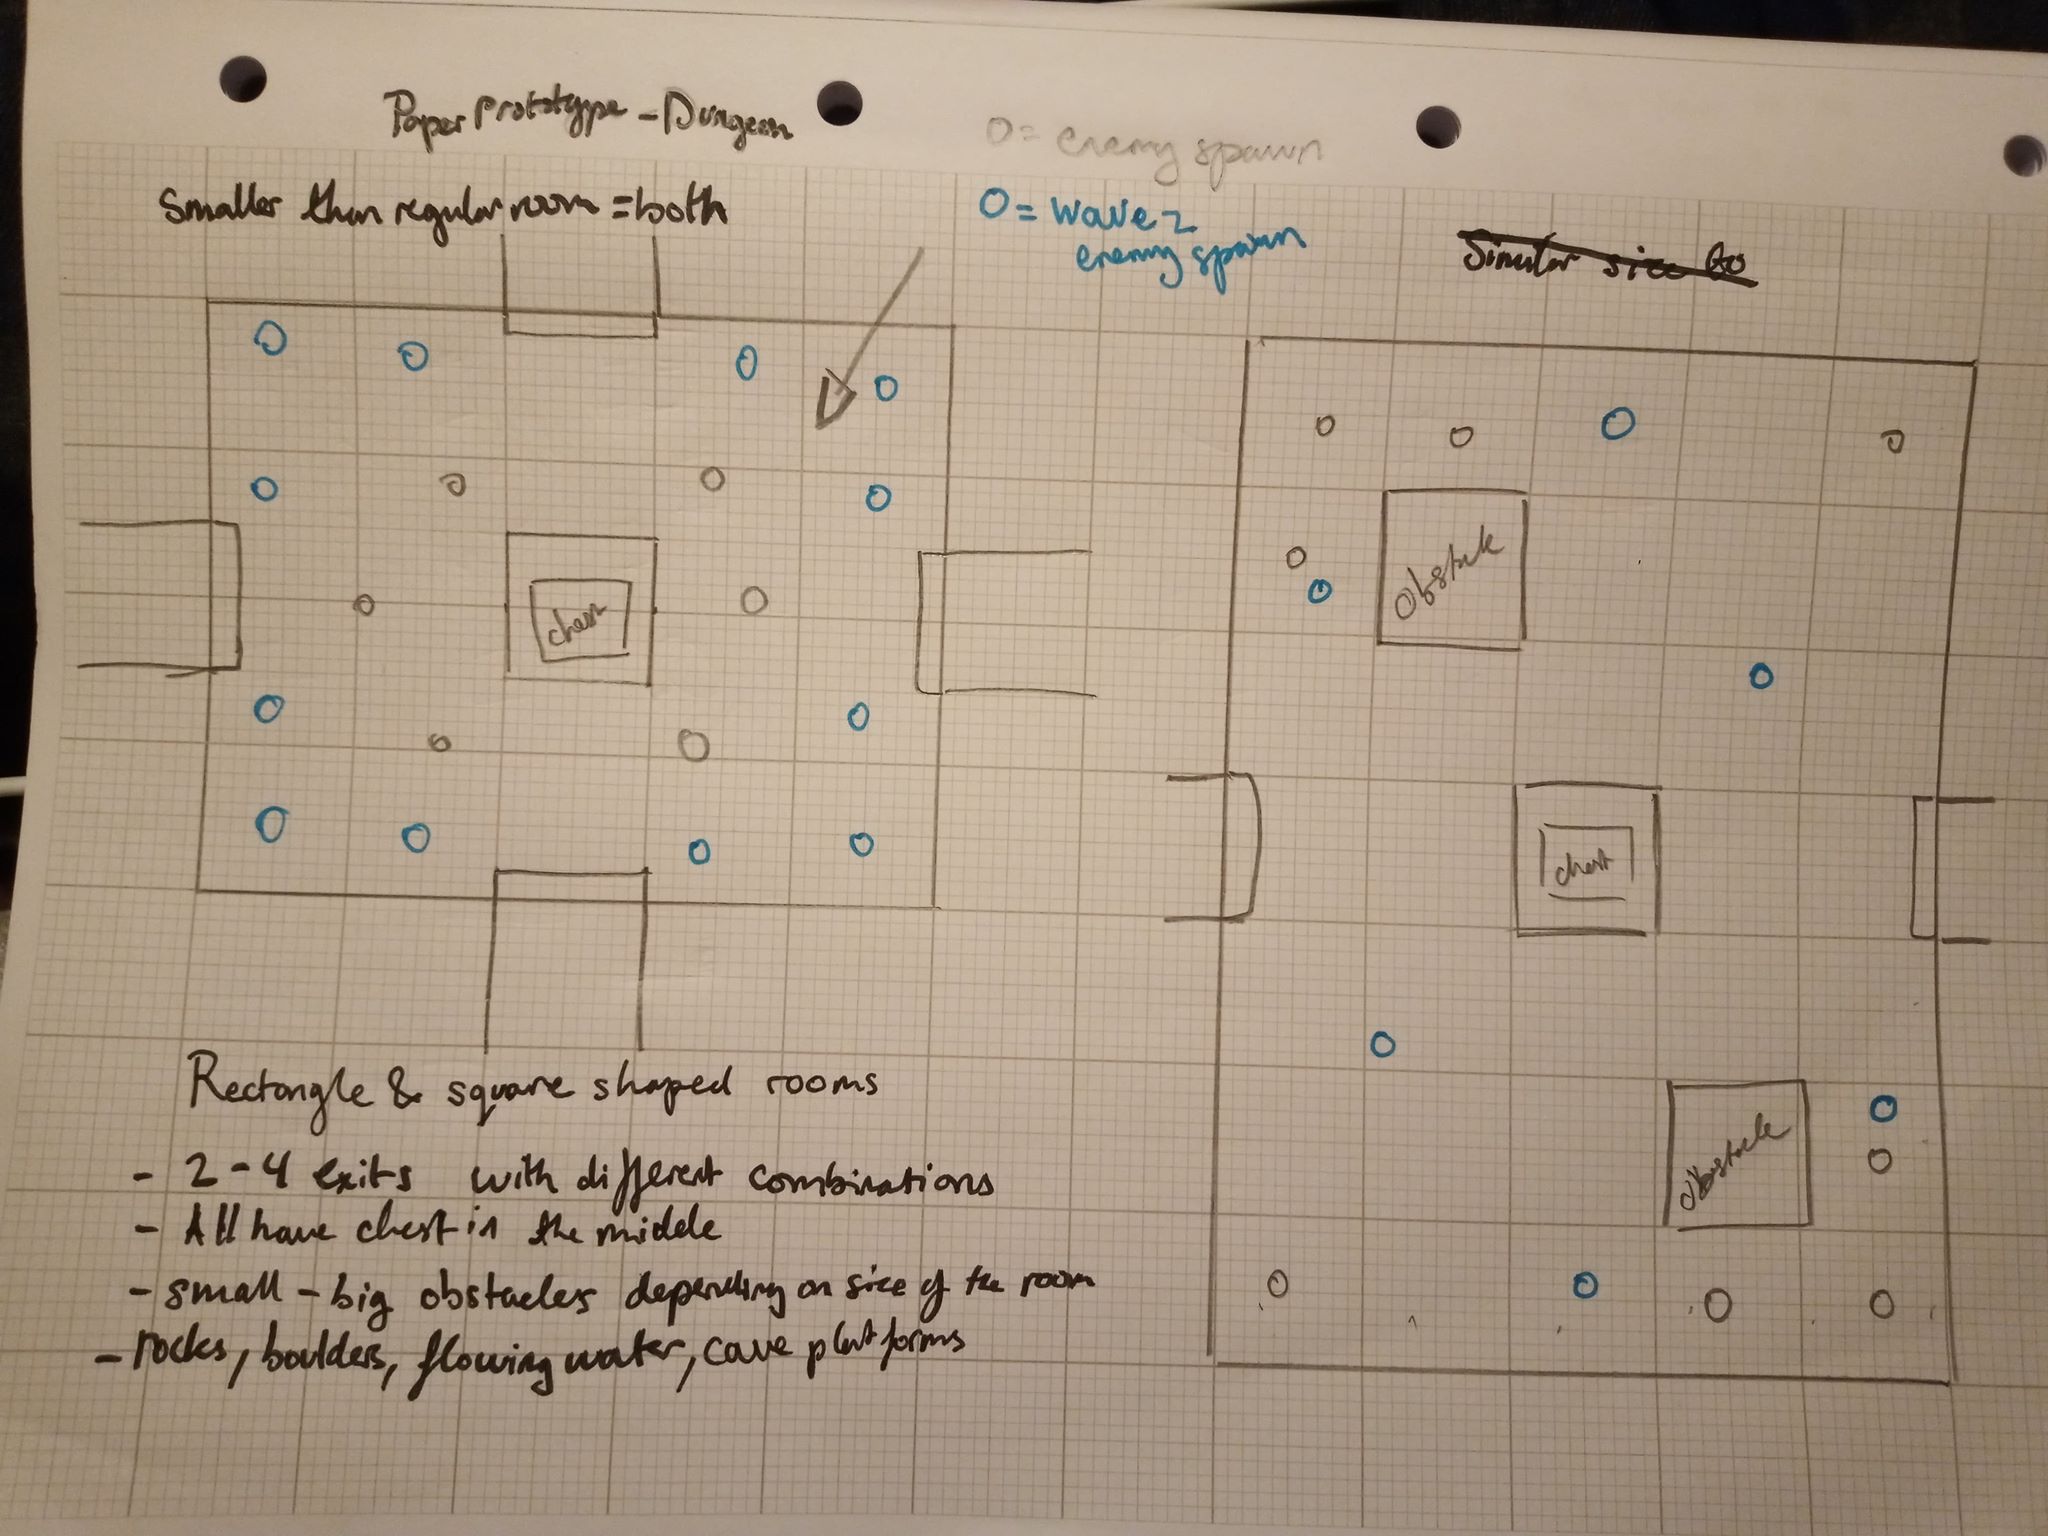 Paper Prototype - Dungeon
O = enemy spawn
Smaller than regular room = both
O = wave 2
enemy spawn
Similar size to
chest
Obstacle
chest
Obstacle
Rectangle & square shaped rooms
- 2 - 4 exits with different combinations
- All have chest in the middle
- small - big obstacles depending on size of the room
- rocks, boulders, flowing water, cave platforms